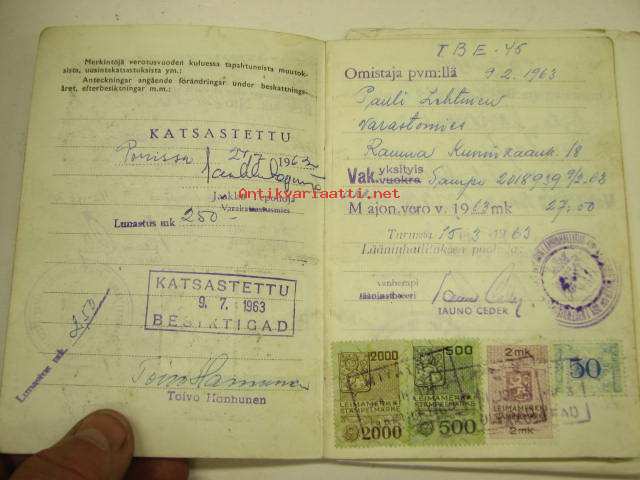 Merkintöjä verotusvuoden kuluessa tapahtuneista muutok-
sista, uusintakatsastuksista ym.:
Anteckningar angående förändringar under beskattnings-
året, efterbesiktningar m.m.:
KATSASTETTU
27/7 1963
Jaakko Lepohoja
Varakatsastusmies
Lunastus mk 250-
KATSASTETTU
9. 7. 1963
BESIKTIGAD
Lunastus mk. 2,50
Toivo Hanhunen
Antikvariaatti.net
TBE-45
Omistaja pvm:llä 9.2.1963
Pauli Lehtinen
Varastomies
Rauma Kuninkaank. 18
Vak. yksityis
vuokra Sampo 2018939 9/2-63
M ajon.vero v. 1963 mk 27:00
Turussa 15/3 1963
Lääninhallituksen puolesta:
vanhempi
lääninkonttoori
TAUNO CEDER
2000
LEIMAMERKKI
STÄMPELMÄRKE
2000
500
LEIMAMERKKI
STÄMPELMÄRKE
500
2 mk
LEIMAMERKKI
STÄMPELMÄRKE
2 mk
50